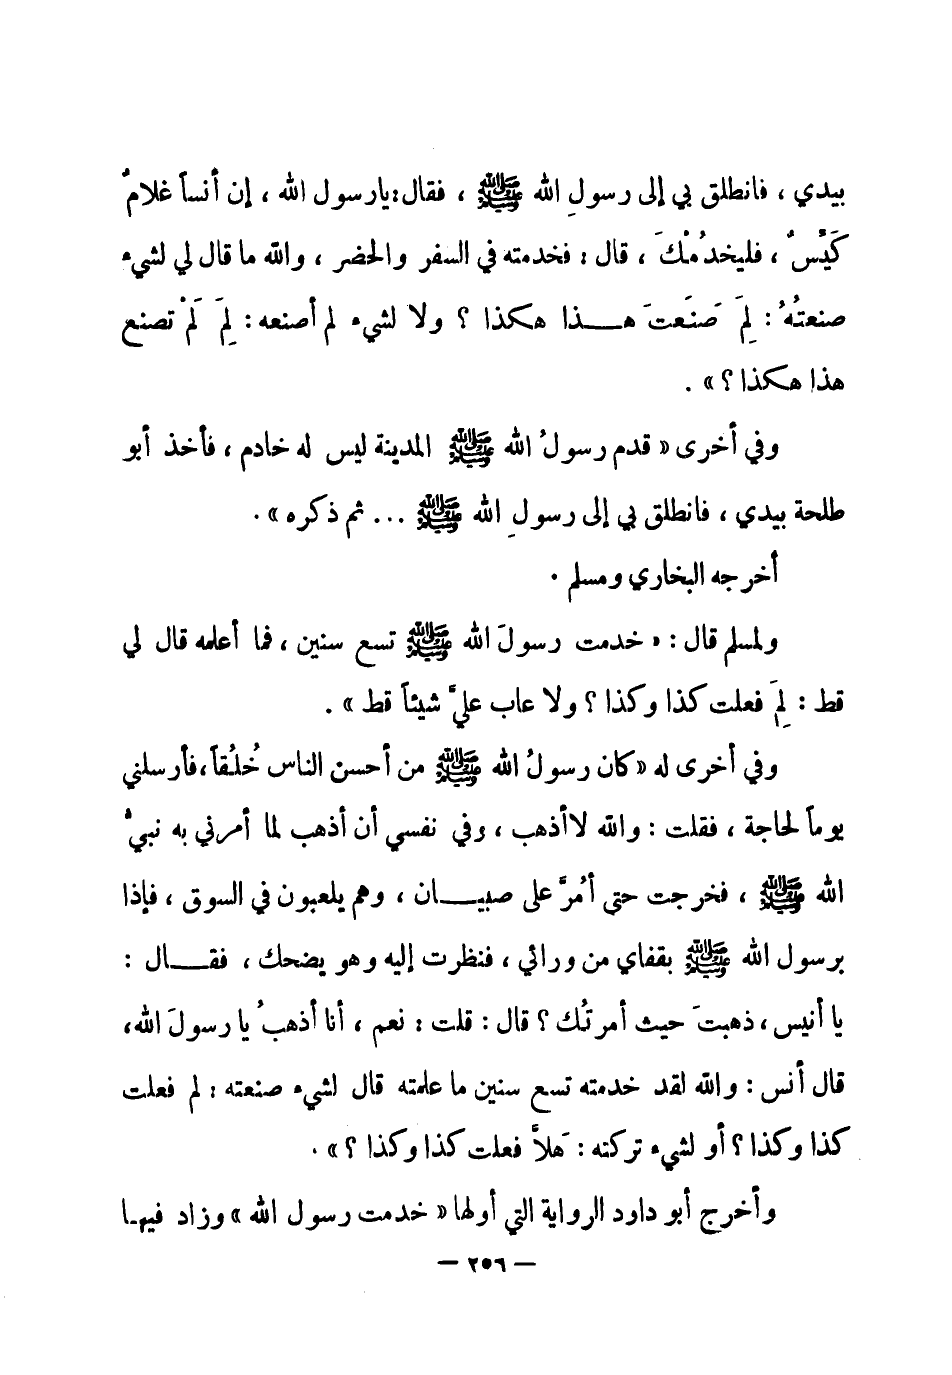 بيدي ، فانطلق بي إلى رسولِ الله ﷺ ، فقال: يارسول الله ، إن أنساً غلامٌ
كَيِّسٌ ، فليخدُمْكَ ، قال : فخدمته في السفر والحضر ، والله ما قال لي لشيء
صنعتُهُ : لِمَ صَنَعتَ هـــذا هكذا ؟ ولا لشيء لم أصنعه : لِمَ لَمْ تصنع
هذا هكذا ؟ » .
وفي أخرى « قدم رسولُ الله ﷺ المدينة ليس له خادم ، فأخذ أبو
طلحة بيدي ، فانطلق بي إلى رسولِ الله ﷺ ... ثم ذكره » .
أخرجه البخاري ومسلم .
ولمسلم قال : « خدمت رسولَ الله ﷺ تسع سنين ، فما أعلمه قال لي
قط : لِمَ فعلت كذا وكذا ؟ ولا عاب عليَّ شيئاً قط » .
وفي أخرى له « كان رسولُ الله ﷺ من أحسن الناس خُلُقاً ، فأرسلني
يوماً لحاجة ، فقلت : والله لا أذهب ، وفي نفسي أن أذهب لما أمرني به نبيُّ
الله ﷺ ، فخرجت حتى أمُرَّ على صبيـــان ، وهم يلعبون في السوق ، فإذا
برسول الله ﷺ بقفاي من ورائي ، فنظرت إليه وهو يضحك ، فقـــال :
يا أنيس ، ذهبتَ حيث أمرتُك ؟ قال : قلت : نعم ، أنا أذهبُ يا رسولَ الله ،
قال أنس : والله لقد خدمته تسع سنين ما علمته قال لشيء صنعته : لم فعلت
كذا وكذا ؟ أو لشيء تركته : هَلاَّ فعلت كذا وكذا ؟ » .
وأخرج أبو داود الرواية التي أولها « خدمت رسول الله » وزاد فيهـا
— ٢٥٦ —